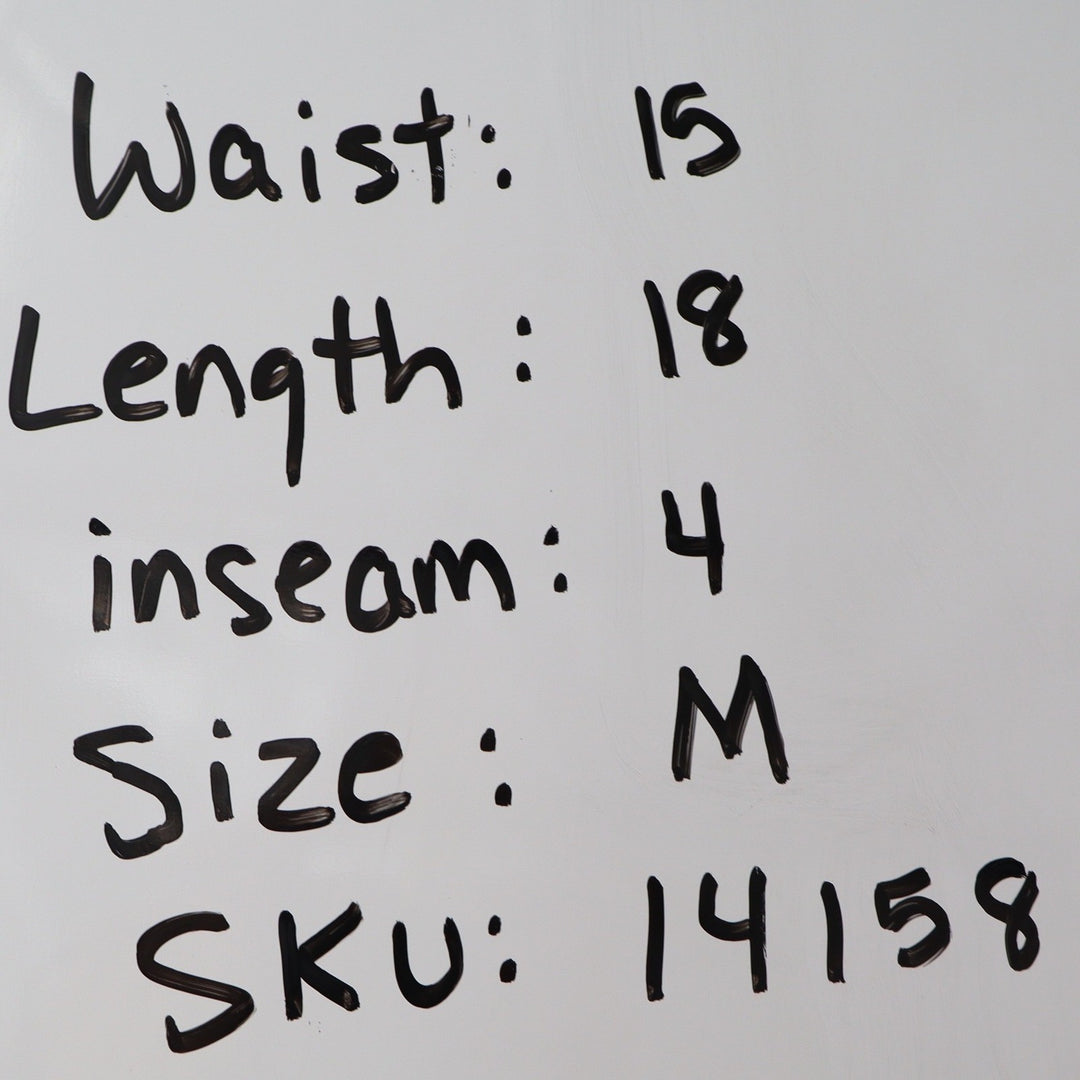 Waist: 15
Length: 18
inseam: 4
Size: M
SKU: 14158